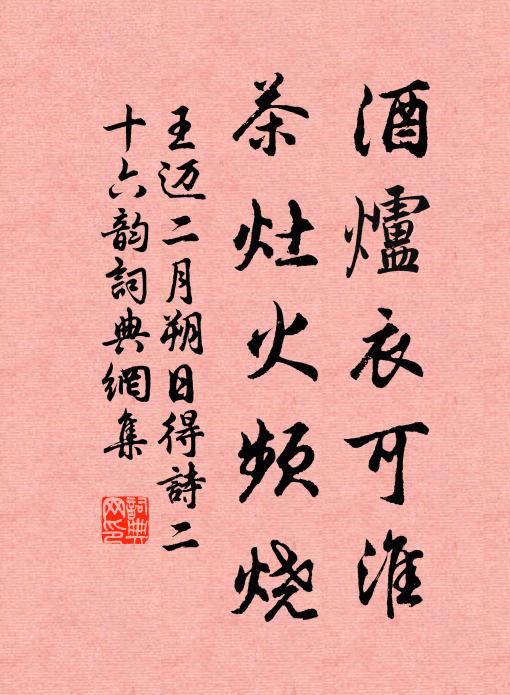 酒爐衣可准
茶灶火频烧
王迈二月朔日得詩二
十六韵詞典網集
詞典
网印